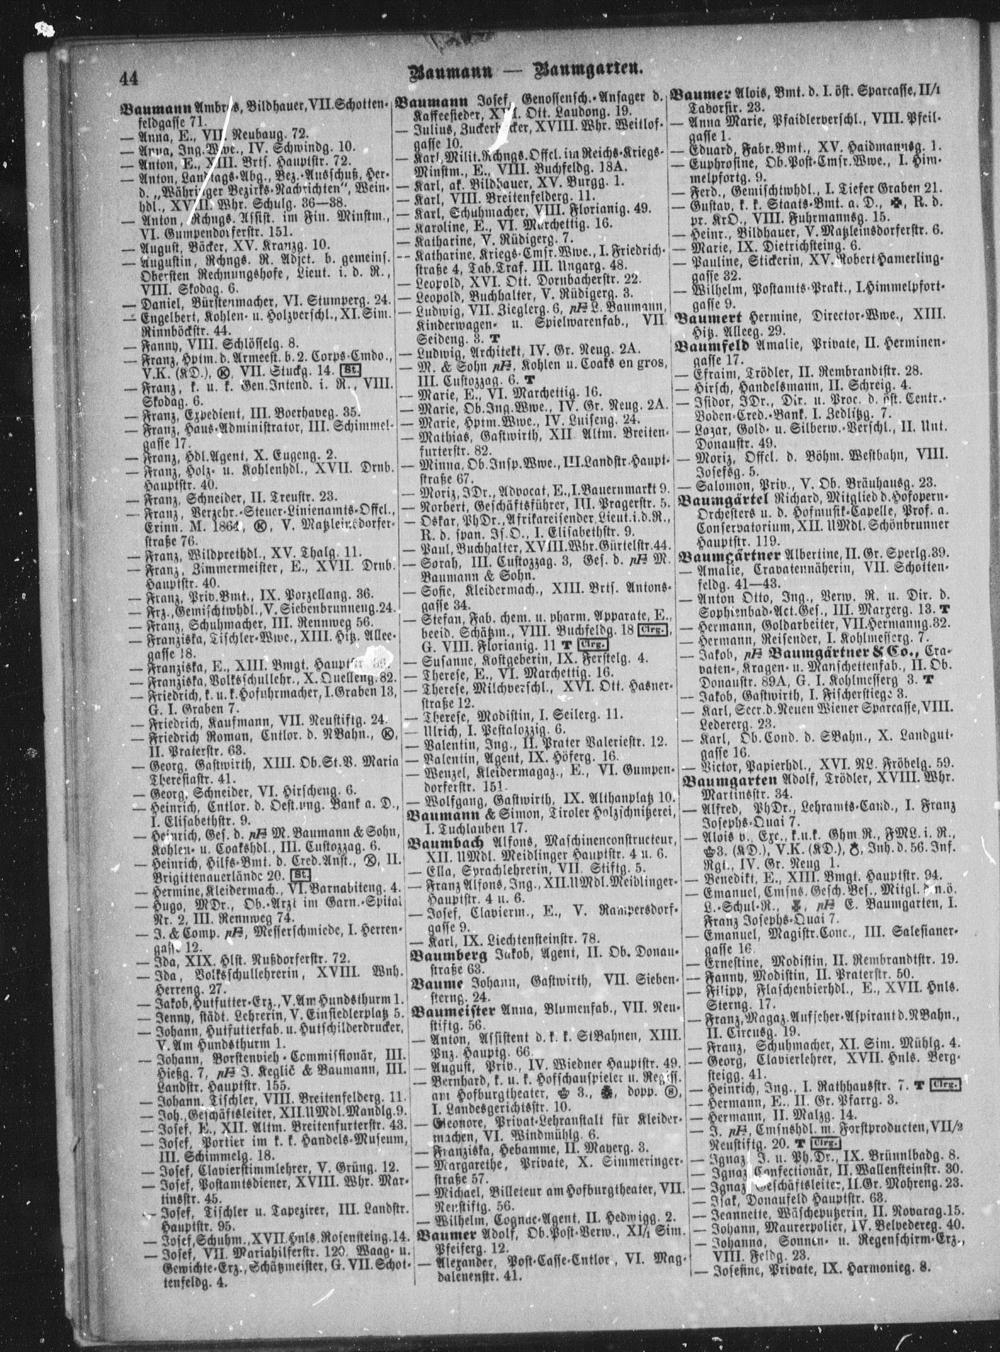 44
Baumann — Baumgarten.
Baumann Ambros, Bildhauer, VII. Schotten-
feldgasse 71.
— Anna, E., VII. Neubaug. 72.
— Ing. Wwe., IV. Schwindg. 10.
— Anton, E., XVIII. Brtf. Hauptstr. 72.
— Anton, Landtags-Abg., Bez.-Ausschuß, Her-
d. „Währinger Bezirks-Nachrichten", Wein-
hdl., XVIII. Whr. Schulg. 36—38.
— Anton, Rchngs. Assist. im Fin. Minstm.,
VI. Gumpendorferstr. 151.
— August, Bäcker, XV. Kranzg. 10.
— Augustin, Rchngs. R. Adjct. b. gemeins.
Obersten Rechnungshofe, Lieut. i. d. R.,
VIII. Skodag. 6.
— Daniel, Bürstenmacher, VI. Stumperg. 24.
— Engelbert, Kohlen- u. Holzverschl., XI. Sim.
Rinnböckstr. 44.
— Fanny, VIII. Schlösselg. 8.
— Franz, Hptm. d. Armeest. b. 2. Corps-Cmdo.,
V.K. (KD.), Ⓚ, VII. Stuckg. 14. St.
— Franz, k. u. k. Gen. Intend. i. R., VIII.
Skodag. 6.
— Franz, Expedient, III. Boerhaveg. 35.
— Franz, Haus-Administrator, III. Schimmel-
gasse 17.
— Franz, Hdl. Agent, X. Eugeng. 2.
— Franz, Holz- u. Kohlenhdl., XVII. Drnb.
Hauptstr. 40.
— Franz, Schneider, II. Treustr. 23.
— Franz, Verzehr.-Steuer-Linienamts-Offcl.,
Erinn. M. 1864, Ⓚ, V. Matzleinsdorfer-
straße 76.
— Franz, Wildprethdl., XV. Thalg. 11.
— Franz, Zimmermeister, E., XVII. Drnb.
Hauptstr. 40.
— Franz, Priv. Bmt., IX. Porzellang. 36.
— Frz., Gemischtwhdl., V. Siebenbrunneng. 24.
— Franz, Schuhmacher, III. Rennweg 56.
— Franziska, Tischler-Wwe., XIII. Hitz. Allee-
gasse 18.
— Franziska, E., XIII. Bmgt. Hauptstr.
— Franziska, Volksschullehr., X. Quelleng. 82.
— Friedrich, k. u. k. Hofuhrmacher, I. Graben 13,
G. I. Graben 7.
— Friedrich, Kaufmann, VII. Neustiftg. 24.
— Friedrich Roman, Cntlor. d. NBahn., Ⓚ,
II. Praterstr. 63.
— Georg, Gastwirth, XIII. Ob. St. V. Maria
Theresiastr. 41.
— Georg, Schneider, VI. Hirscheng. 6.
— Heinrich, Cntlor. d. Oest. ung. Bank a. D.,
I. Elisabethstr. 9.
— Heinrich, Ges. d. pH M. Baumann & Sohn,
Kohlen- u. Coakshdl., III. Custozzag. 6.
— Heinrich, Hilfs-Bmt. d. Cred. Anst., Ⓚ, II.
Brigittenauerlände 20. St.
— Hermine, Kleidermach., VI. Barnabiteng. 4.
— Hugo, MDr., Ob.-Arzt im Garn.-Spital
Nr. 2, III. Rennweg 74.
— J. & Comp. pH, Messerschmiede, I. Herren-
gasse 12.
— Ida, XIX. Hlst. Nußdorferstr. 72.
— Ida, Volksschullehrerin, XVIII. Wnh.
Herreng. 27.
— Jakob, Hutfutter-Erz., V. Am Hundsthurm 1.
— Jenny, städt. Lehrerin, V. Einsiedlerplatz 5.
— Johann, Hutfutterfab. u. Hutschilderdrucker,
V. Am Hundsthurm 1.
— Johann, Borstenvieh-Commissionär, III.
Hießg. 7, pH J. Keglič & Baumann, III.
Landstr. Hauptstr. 155.
— Johann, Tischler, VIII. Breitenfelderg. 11.
— Joh., Geschäftsleiter, XII. UMdl. Mandlg. 9.
— Josef, E., XII. Altm. Breitenfurterstr. 43.
— Josef, Portier im k. k. Handels-Museum,
III. Schimmelg. 18.
— Josef, Clavierstimmlehrer, V. Grüng. 12.
— Josef, Postamtsdiener, XVIII. Whr. Mar-
tinsstr. 45.
— Josef, Tischler u. Tapezirer, III. Landstr.
Hauptstr. 95.
— Josef, Schuhm., XVII. Hnls. Rosensteing. 14.
— Josef, VII. Mariahilferstr. 120. Waag- u.
Gewichte-Erz., Schätzmeister, G. VII. Schot-
tenfeldg. 4.
Baumann Josef, Genossensch.-Ansager d.
Kaffeesieder, XVI. Ott. Laudong. 19.
— Julius, Zuckerbäcker, XVIII. Whr. Weitlof-
gasse 10.
— Karl, Milit. Rchngs. Offcl. im Reichs-Kriegs-
Minstm., E., VIII. Buchfeldg. 18A.
— Karl, ak. Bildhauer, XV. Burgg. 1.
— Karl, VIII. Breitenfelderg. 11.
— Karl, Schuhmacher, VIII. Florianig. 49.
— Karoline, E., VI. Marchettig. 16.
— Katharine, V. Rüdigerg. 7.
— Katharine, Kriegs-Cmsr. Wwe., I. Friedrich-
straße 4, Tab. Traf. III. Ungarg. 48.
— Leopold, XVI. Ott. Dornbacherstr. 22.
— Leopold, Buchhalter, V. Rüdigerg. 3.
— Ludwig, VII. Zieglerg. 6, pH L. Baumann,
Kinderwagen- u. Spielwarenfab., VII.
Seideng. 3. T
— Ludwig, Architekt, IV. Gr. Neug. 2A.
— M. & Sohn pH, Kohlen u. Coaks en gros,
III. Custozzag. 6. T
— Marie, E., VI. Marchettig. 16.
— Marie, Ob. Ing. Wwe., IV. Gr. Neug. 2A.
— Marie, Hptm. Wwe., IV. Luiseng. 24.
— Mathias, Gastwirth, XII. Altm. Breiten-
furterstr. 82.
— Minna, Ob. Insp. Wwe., III. Landstr. Haupt-
straße 67.
— Moriz, JDr., Advocat, E., I. Bauernmarkt 9.
— Norbert, Geschäftsführer, III. Pragerstr. 5.
— Oskar, PhDr., Afrikareisender, Lieut. i. d. R.,
R. d. span. Is. O., I. Elisabethstr. 9.
— Paul, Buchhalter, XVIII. Whr. Gürtelstr. 44.
— Sarah, III. Custozzag. 3, Ges. d. pH M.
Baumann & Sohn.
— Sofie, Kleidermach., XIII. Brtf. Antons-
gasse 34.
— Stefan, Fab. chem. u. pharm. Apparate, E.,
beeid. Schätzm., VIII. Buchfeldg. 18 Clrg.,
G. VIII. Florianig. 11 T Clrg.
— Susanne, Kostgeberin, IX. Ferstelg. 4.
— Therese, E., VI. Marchettig. 16.
— Therese, Milchverschl., XVI. Ott. Hasner-
straße 12.
— Therese, Modistin, I. Seilerg. 11.
— Ulrich, I. Pestalozzig. 6.
— Valentin, Ing., II. Prater Valeriestr. 12.
— Valentin, Agent, IX. Höferg. 16.
— Wenzel, Kleidermagaz., E., VI. Gumpen-
dorferstr. 151.
— Wolfgang, Gastwirth, IX. Althanplatz 10.
Baumann & Simon, Tiroler Holzschnitzerei,
I. Tuchlauben 17.
Baumbach Alfons, Maschinenconstructeur,
XII. UMdl. Meidlinger Hauptstr. 4 u. 6.
— Ella, Sprachlehrerin, VII. Stiftg. 5.
— Franz Alfons, Ing., XII. UMdl. Meidlinger-
Hauptstr. 4 u. 6.
— Josef, Clavierm., E., V. Ramperstorf-
gasse 9.
— Karl, IX. Liechtensteinstr. 78.
Baumberg Jakob, Agent, II. Ob. Donau-
straße 63.
Baume Johann, Gastwirth, VII. Sieben-
sterng. 24.
Baumeister Anna, Blumenfab., VII. Neu-
stiftg. 56.
— Anton, Assistent d. k. k. StBahnen, XIII.
Pnz. Hauptg. 66.
— August, Priv., IV. Wiedner Hauptstr. 49.
— Bernhard, k. u. k. Hofschauspieler u. Regiss.
am Hofburgtheater, 3., dopp. Ⓚ,
I. Landesgerichtsstr. 10.
— Eleonore, Privat-Lehranstalt für Kleider-
machen, VI. Windmühlg. 6.
— Franziska, Hebamme, II. Mayerg. 3.
— Margarethe, Private, X. Simmeringer-
straße 57.
— Michael, Billeteur am Hofburgtheater, VII.
Neustiftg. 56.
— Wilhelm, Cognac-Agent, II. Hedwigg. 2.
Baumer Adolf, Ob. Post-Verw., XI/1 Sim.
Pfeiferg. 12.
— Alexander, Post-Casse-Cntlor, VI. Mag-
dalenenstr. 41.
Baumer Alois, Bmt. d. I. öst. Sparcasse, II/1
Taborstr. 23.
— Anna Marie, Pfaidlerverschl., VIII. Pfeil-
gasse 1.
— Eduard, Fabr. Bmt., XV. Haidmannsg. 1.
— Euphrosine, Ob. Post-Cmsr. Wwe., I. Him-
melpfortg. 9.
— Ferd., Gemischtwhdl., I. Tiefer Graben 21.
— Gustav, k. k. Staats-Bmt. a. D., ✠, R. d.
pr. KrO., VIII. Fuhrmannsg. 15.
— Heinr., Bildhauer, V. Matzleinsdorferstr. 6.
— Marie, IX. Dietrichsteing. 6.
— Pauline, Stickerin, XV. Robert Hamerling-
gasse 32.
— Wilhelm, Postamts-Prakt., I. Himmelpfort-
gasse 9.
Baumert Hermine, Director-Wwe., XIII.
Hitz. Alleeg. 29.
Baumfeld Amalie, Private, II. Herminen-
gasse 17.
— Efraim, Trödler, II. Rembrandtstr. 28.
— Hirsch, Handelsmann, II. Schreig. 4.
— Isidor, JDr., Dir. u. Proc. d. öst. Centr.-
Boden-Cred.-Bank, I. Zedlitzg. 7.
— Lazar, Gold- u. Silberw.-Verschl., II. Unt.
Donaustr. 49.
— Moriz, Offcl. d. Böhm. Westbahn, VIII.
Josefsg. 5.
— Salomon, Priv., V. Ob. Bräuhausg. 23.
Baumgärtel Richard, Mitglied d. Hofopern-
Orchesters u. d. Hofmusik-Capelle, Prof. a.
Conservatorium, XII. UMdl. Schönbrunner
Hauptstr. 119.
Baumgärtner Albertine, II. Gr. Sperlg. 39.
— Amalie, Cravatennäherin, VII. Schotten-
feldg. 41—43.
— Anton Otto, Ing., Verw. R. u. Dir. d.
Sophienbad-Act. Ges., III. Marxerg. 13. T
— Hermann, Goldarbeiter, VII. Hermanng. 32.
— Hermann, Reisender, I. Kohlmesserg. 7.
— Jakob, pH Baumgärtner & Co., Cra-
vaten-, Kragen- u. Manschettenfab., II. Ob.
Donaustr. 89A, G. I. Kohlmesserg. 3. T
— Jakob, Gastwirth, I. Fischerstiege 3.
— Karl, Secr. d. Neuen Wiener Sparcasse, VIII.
Ledererg. 23.
— Karl, Ob. Cond. d. SBahn., X. Landgut-
gasse 16.
— Victor, Papierhdl., XVI. NL. Fröbelg. 59.
Baumgarten Adolf, Trödler, XVIII. Whr.
Martinsstr. 34.
— Alfred, PhDr., Lehramts-Cand., I. Franz
Josephs-Quai 7.
— Alois v., Exc., k. u. k. Ghm R., FML. i. R.,
3. (KD.), V.K. (KD.), Inh. d. 56. Inf.
Rgt., IV. Gr. Neug. 1.
— Benedikt, E., XIII. Bmgt. Hauptstr. 94.
— Emanuel, Cmsns. Gesch. Bes., Mitgl. d. n. ö.
L.-Schul-R., pH E. Baumgarten, I.
Franz Josephs-Quai 7.
— Emanuel, Magistr. Conc., III. Salesianer-
gasse 16.
— Ernestine, Modistin, II. Rembrandtstr. 19.
— Fanny, Modistin, II. Praterstr. 50.
— Filipp, Flaschenbierhdl., E., XVII. Hnls.
Sterng. 17.
— Franz, Magaz. Aufseher-Aspirant d. NBahn.,
II. Circusg. 19.
— Franz, Schuhmacher, XI. Sim. Mühlg. 4.
— Georg, Clavierlehrer, XVII. Hnls. Berg-
steigg. 41.
— Heinrich, Ing., I. Rathhausstr. 7. T Clrg.
— Hermann, E., II. Gr. Pfarrg. 3.
— Hermann, II. Malzg. 14.
— J. pH, Cmsnshdl. m. Forstproducten, VII/2
Neustiftg. 20. T Clrg.
— Ignaz, J. u. Ph. Dr., IX. Brünnlbadg. 8.
— Ignaz, Confectionär, II. Wallensteinstr. 30.
— Ignaz, Geschäftsleiter, II. Gr. Mohreng. 23.
— Isak, Donaufeld Hauptstr. 63.
— Jeannette, Wäscheputzerin, II. Novarag. 15.
— Johann, Maurerpolier, IV. Belvedereg. 40.
— Johanna, Sonnen- u. Regenschirm-Erz.,
VIII. Feldg. 23.
— Josefine, Private, IX. Harmonieg. 8.